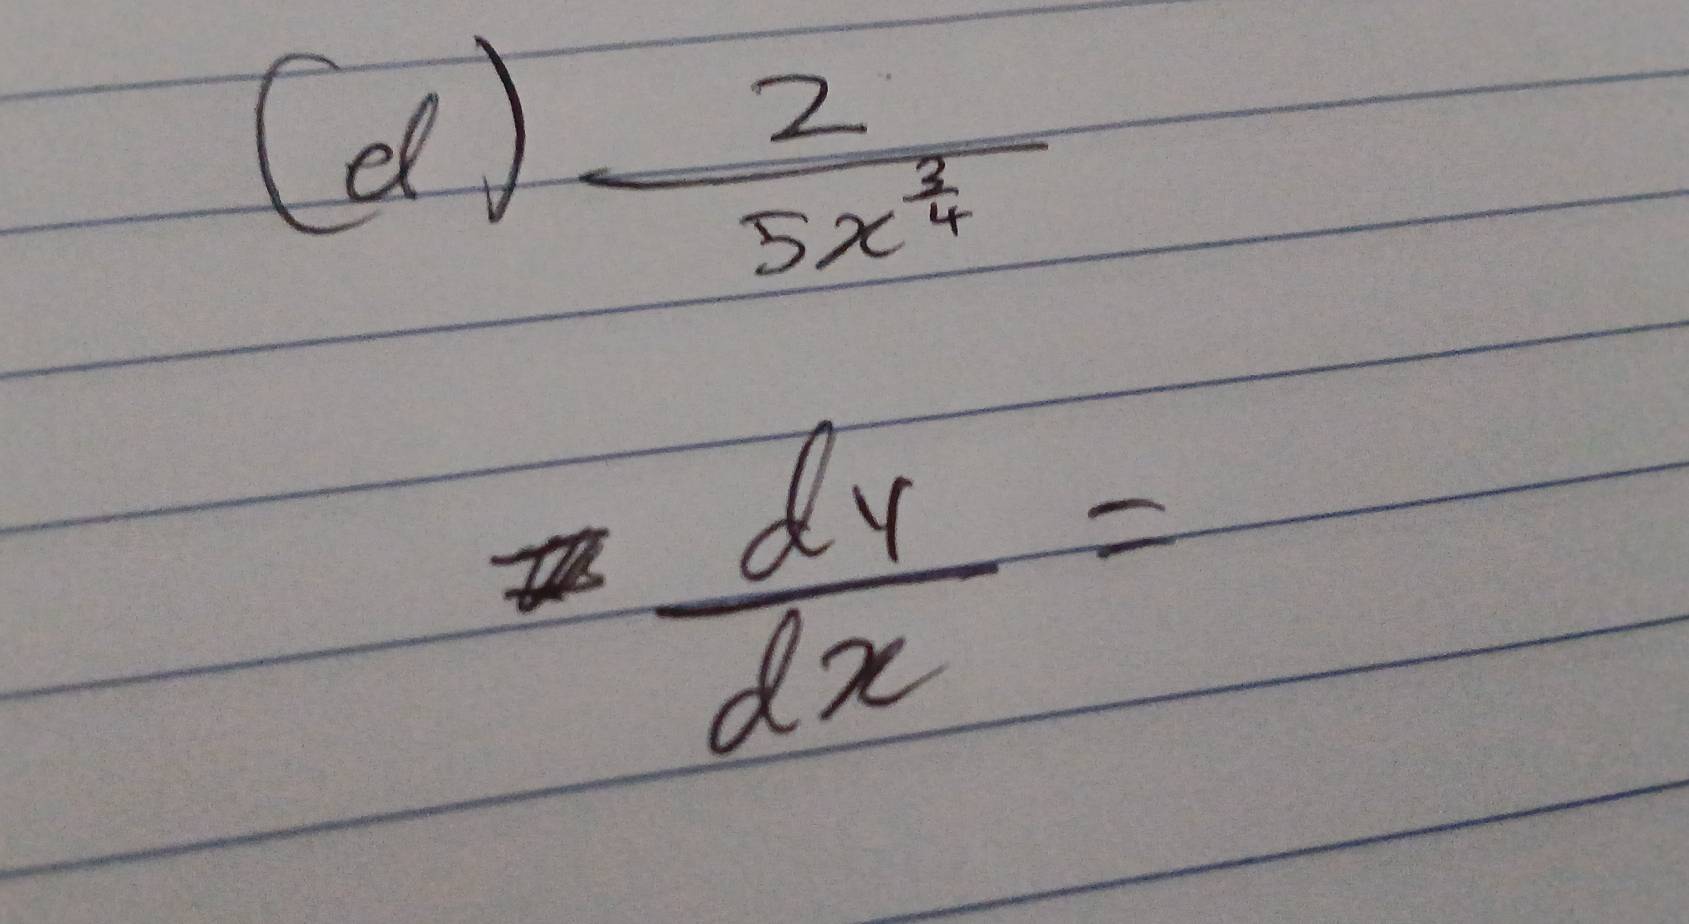 (d) \frac{2}{5x^{\frac{3}{4}}}
\frac{dy}{dx} =